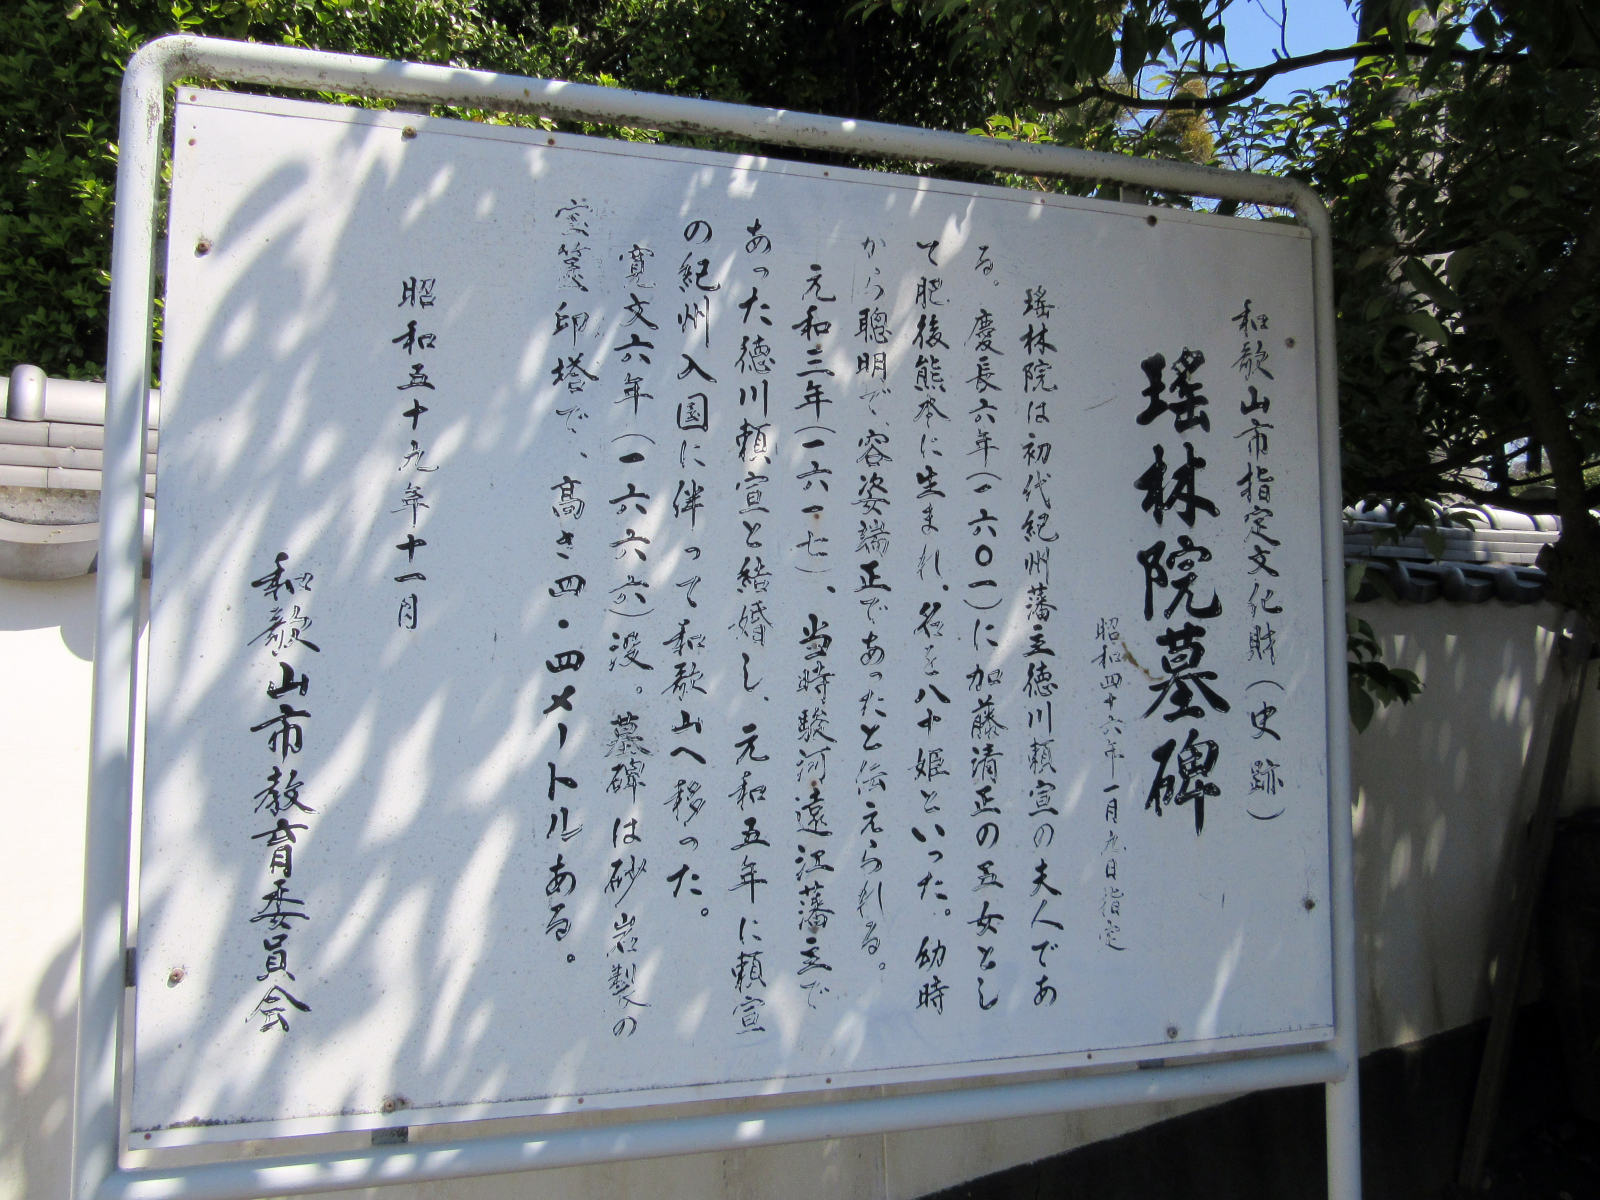 和歌山市指定文化財（史跡）
瑤林院墓碑
昭和四十六年一月九日指定
瑤林院は初代紀州藩主徳川頼宣の夫人であ
る。慶長六年（一六〇一）に加藤清正の五女とし
て肥後熊本に生まれ、名を八十姫といった。幼時
から聰明で、容姿端正であったと伝えられる。
元和三年（一六一七）、当時駿河遠江藩主で
あった徳川頼宣と結婚し、元和五年に頼宣
の紀州入国に伴って和歌山へ移った。
寛文六年（一六六六）没。墓碑は砂岩製の
宝篋印塔で、高さ四・四メートルある。
昭和五十九年十一月
和歌山市教育委員会